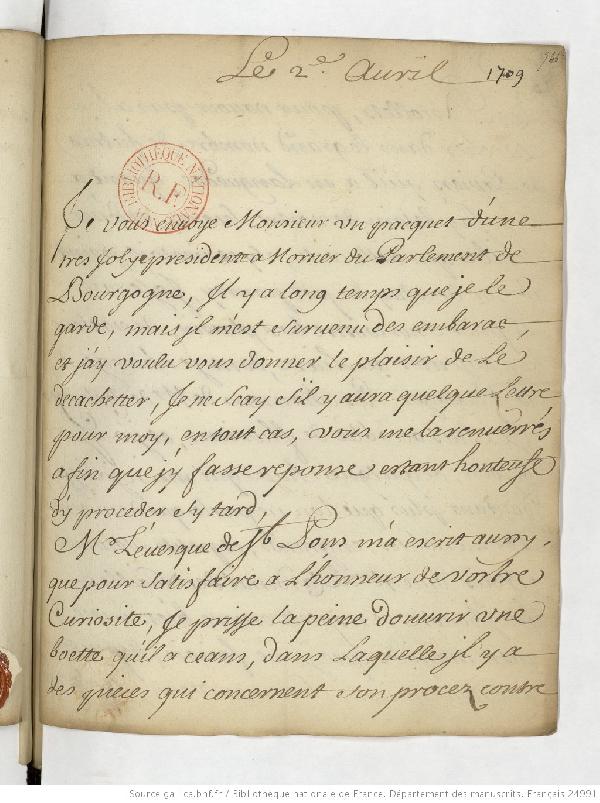 Le 2e. Auril 1709
BIBLIOTHEQUE NATIONALE
R.F.
Je vous enuoye Monsieur vn pacquet d'une
tres Jolye presidente a Mortier du Parlement de
Bourgogne, Il y a long temps que je le
garde, mais jl m'est suruenu des embarac,
et j'ay voulu vous donner le plaisir de Le
decachetter, Je ne scay s'il y aura quelque Lettre
pour moy, en tout cas, vous me la renuerrés
afin que j'y fasse reponse estant honteusse
d'y proceder sy tard,
Mr. L'euesque de st. Pons m'a escrit aussy,
que pour satisfaire a L'honneur de vostre
Curiosité, Je prisse la peine d'ouurir vne
boette qu'il a ceans, dans Laquelle jl y a
des pieces qui concernent son procez contre
Source gallica.bnf.fr / Bibliothèque nationale de France. Département des manuscrits. Français 24991